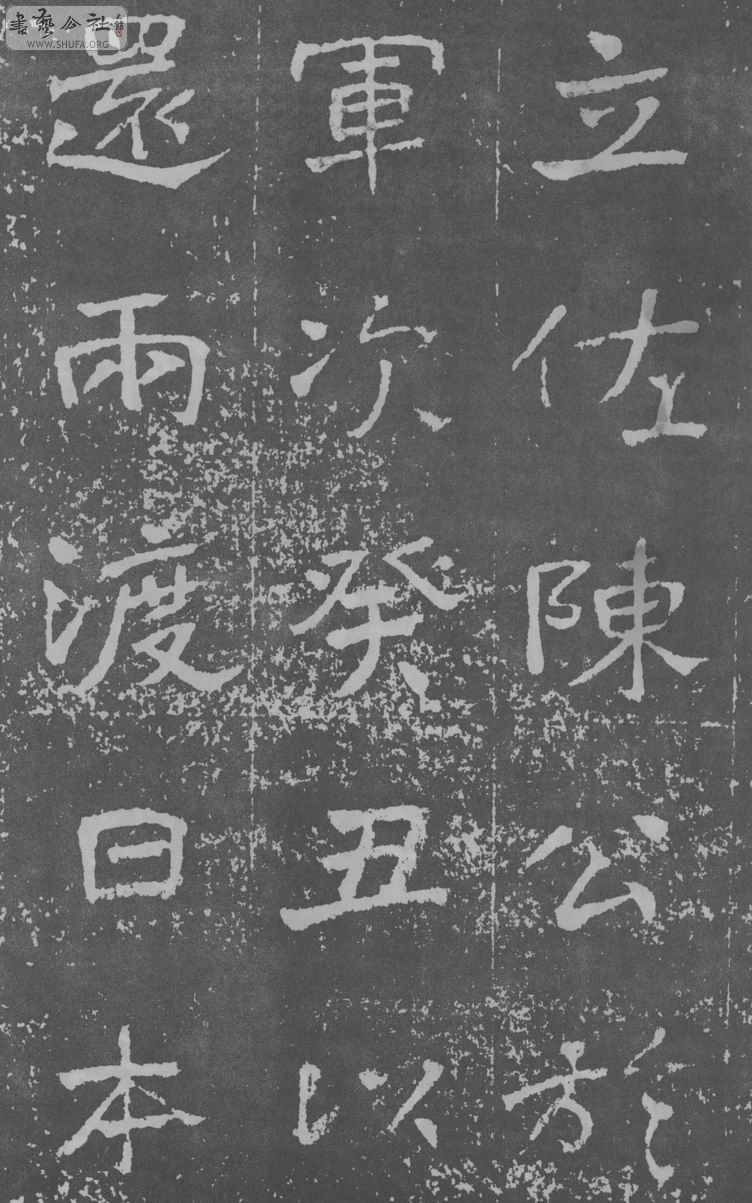 立佐陳公於
軍次癸丑以
還兩渡日本
書藝公社
WWW.SHUFA.ORG